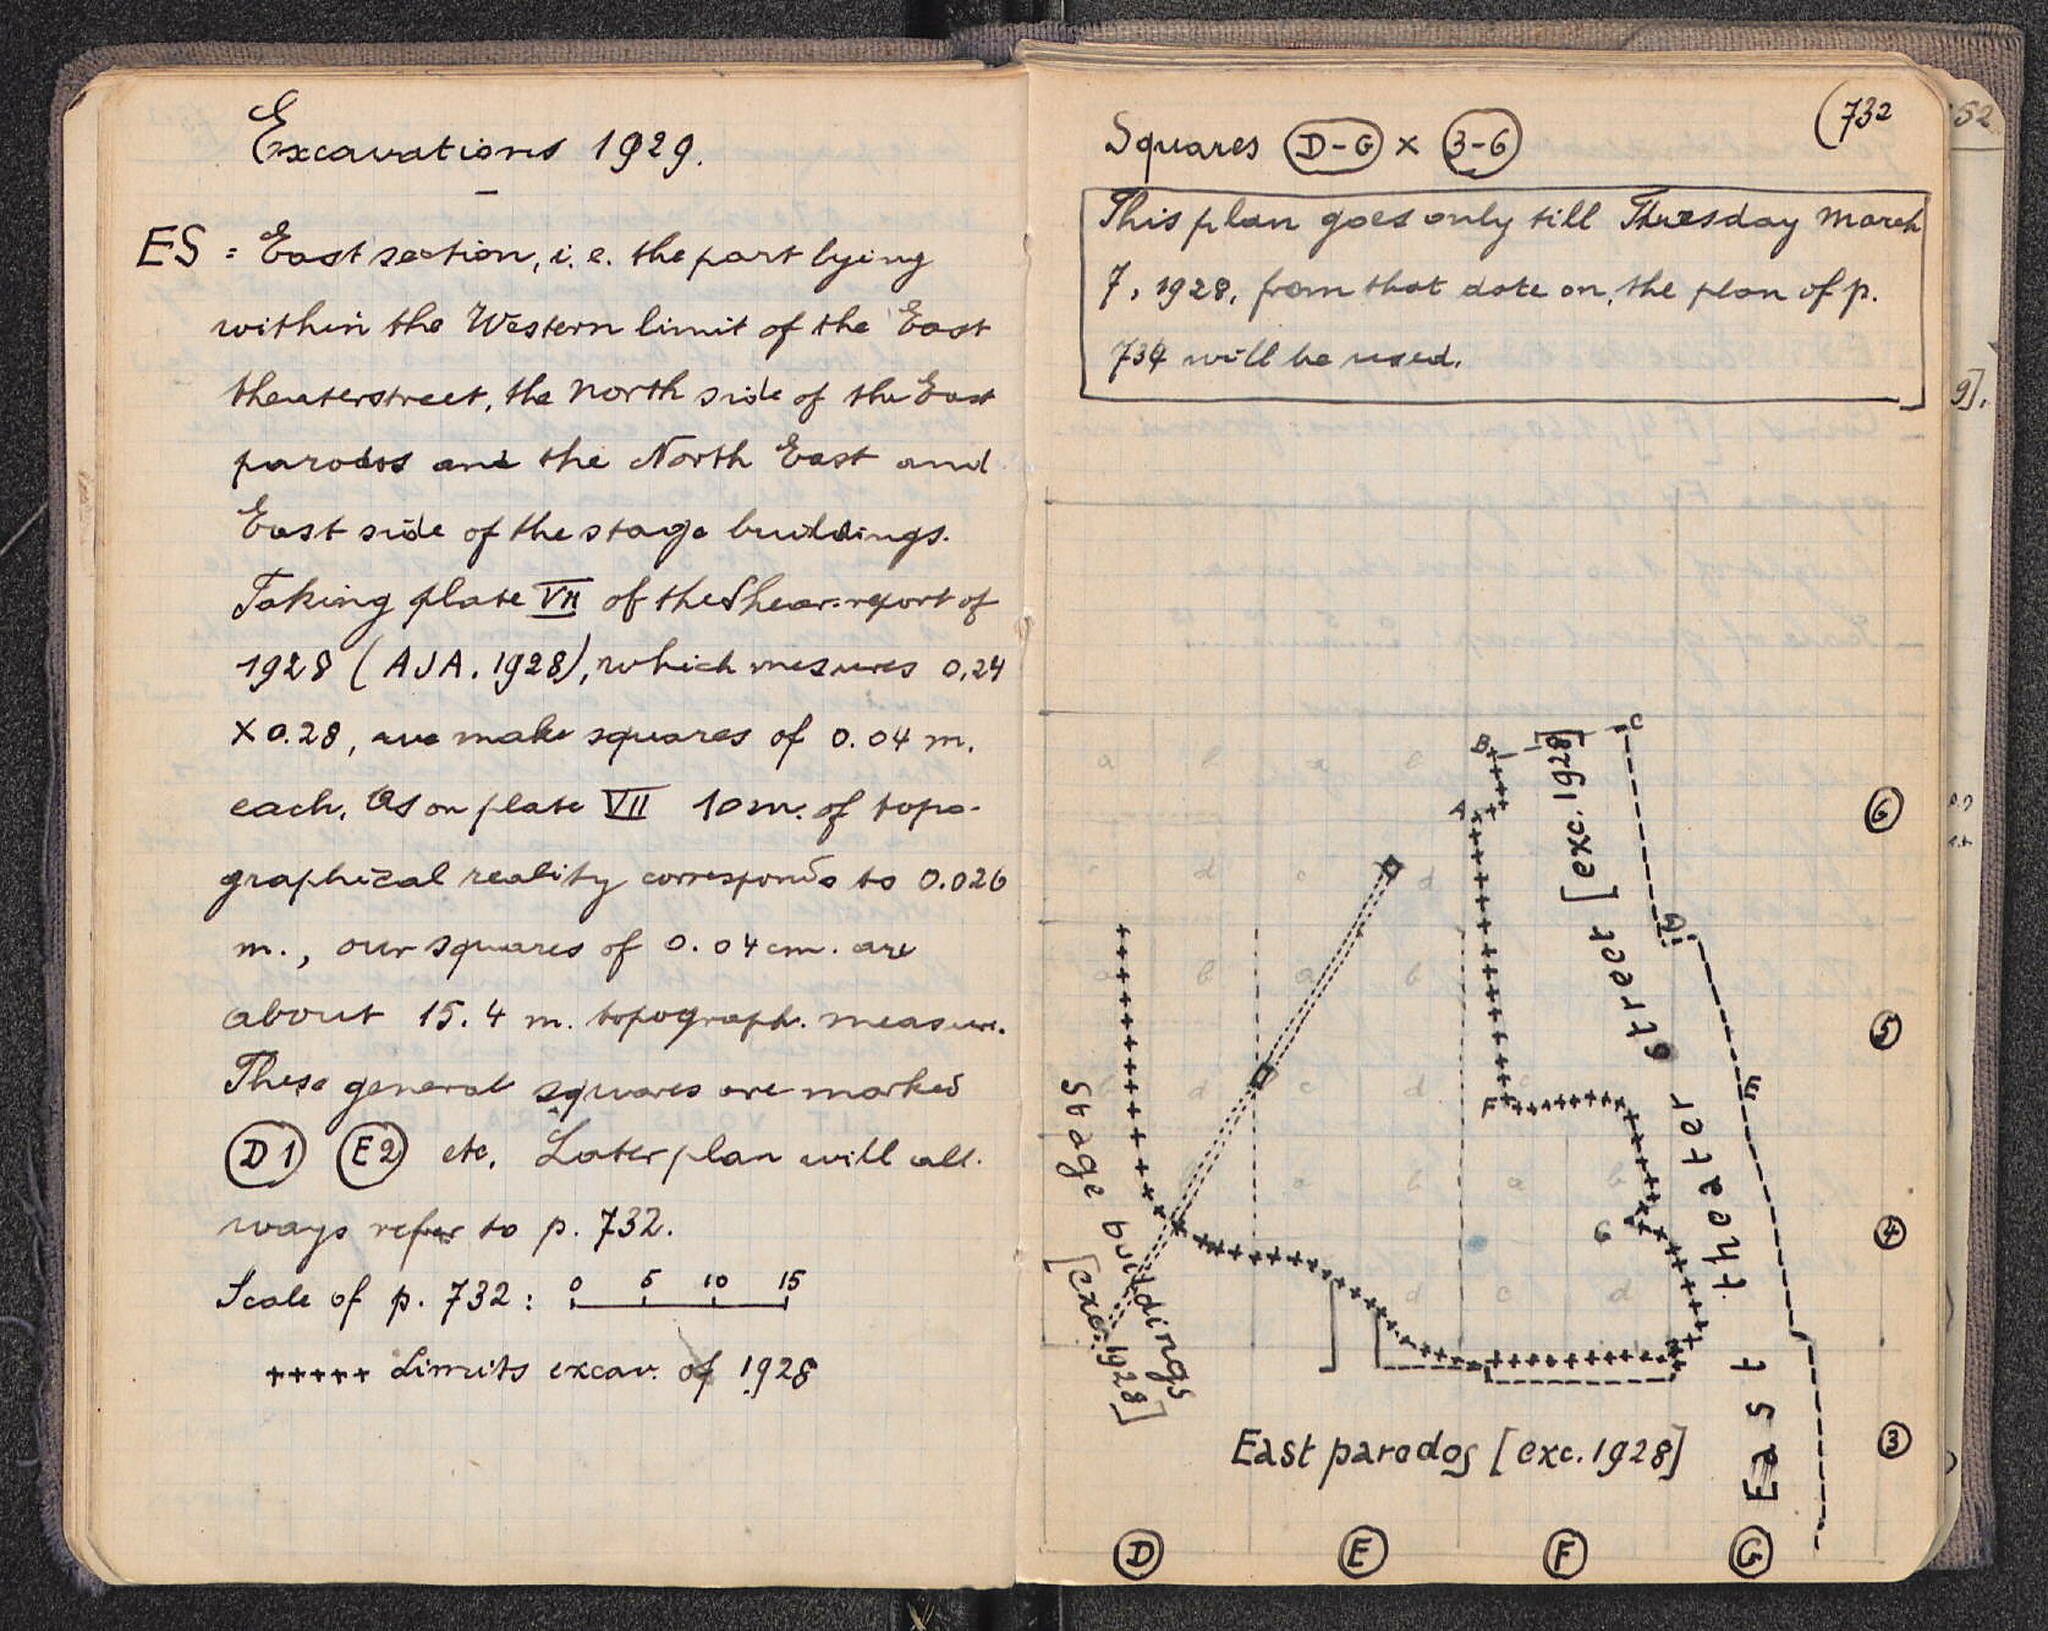 Excavations 1929.
ES = East section, i.e. the part lying
within the Western limit of the East
theaterstreet, the north side of the East
parodos and the North East and
East side of the stage buildings.
Taking plate VII of the Shear-report of
1928 (AJA. 1928), which mesures 0,24
X 0.28, we make squares of 0.04 m.
each. As on plate VII 10 m. of topo-
graphical reality corresponds to 0.026
m., our squares of 0.04 cm. are
about 15.4 m. topograph. measur.
These general squares are marked
D1 E2 etc. Later plan will all-
ways refer to p. 732.
Scale of p. 732: 0 5 10 15
+++++ Limits excav. of 1928
(732
52
Squares D-G × 3-6
This plan goes only till Thursday March
7, 1928, from that date on, the plan of p.
734 will be used.
9].
a b a b
B
C
A
6
d c d
D
a b a b
5
d c d
F
E
a b a b
G
4
d c d
3
Stage buildings
[exc. 1928]
East theater street [exc. 1928]
East parodos [exc. 1928]
D E F G